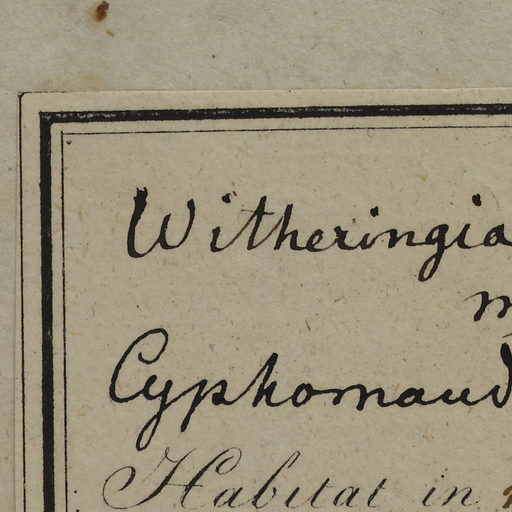 Witheringia
m
Cyphomand
Habitat in